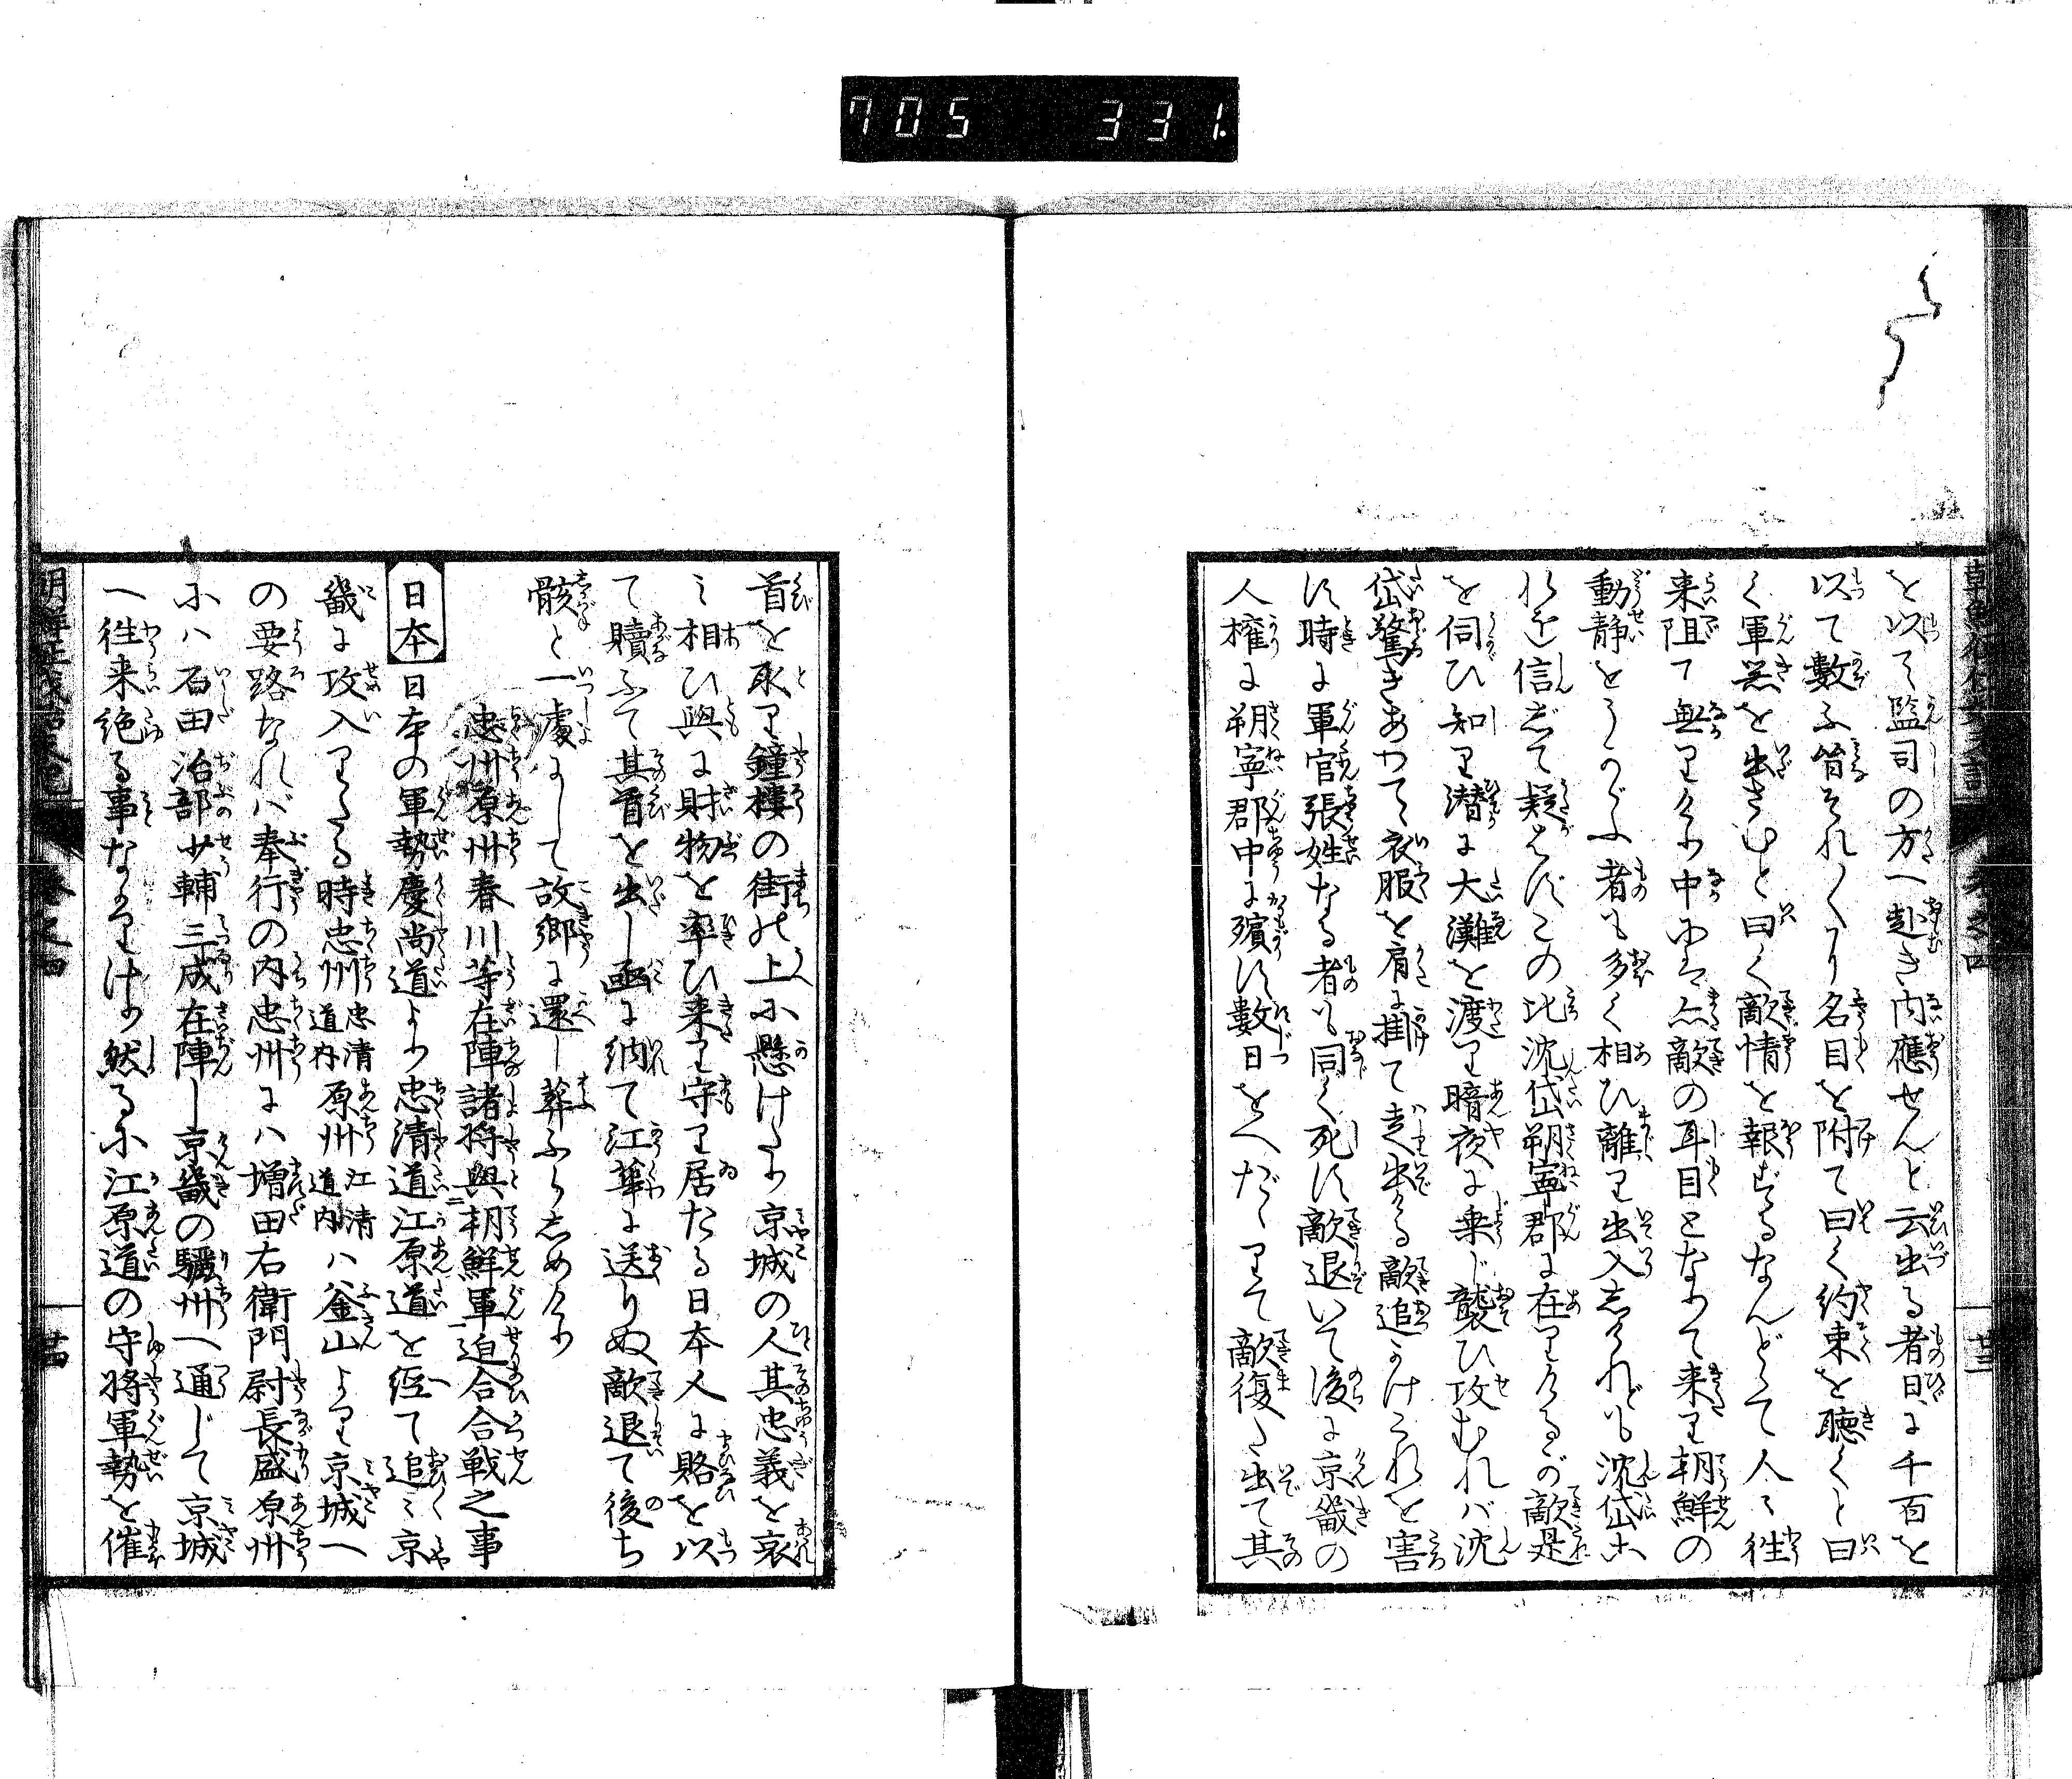 705 331.
を以て監司の方へ赴き内應せんと云出る者日に千百を
以て數ふ皆それ〳〵り名目を附て曰く約束を聽くと曰
く軍器を出さむと曰く敵情を報ずるなんどとて人ミ徃
来阻て無りけり中にハ亦敵の耳目となりて来り朝鮮の
動静をうかゞふ者も多く相ひ離り出入しけれども沈岱
れを信じて疑はずこの比沈岱朔寧郡に在りけるが敵是
を伺ひ知り潜に大灘を渡り暗夜に乗じ襲ひ攻むれバ沈
岱驚きあわて衣服を肩に掛て走出る敵追かけこれを害
す時に軍官張姓なる者も同く死す敵退いて後に京畿の
人榷に朔寧郡中に殯す數日をへだゝりて敵復た出て其
首を取り鐘樓の街の上に懸けたり京城の人其忠義を哀
ミ相ひ與に財物を率ひ来り守り居たる日本人に賂を以
て贖ふて其首を出し函に納て江華に送りぬ敵退て後ち
骸と一處にして故郷に還し葬ふらしめけり
忠州原州春川等在陣諸将與朝鮮軍迫合合戦之事
日本 日本の軍勢慶尚道より忠清道江原道を経て追ミ京
畿に攻入りたる時忠州 忠清道内 原州 江清道内 ハ釜山より京城へ
の要路なれバ奉行の内忠州にハ増田右衛門尉長盛原州
にハ石田治部少輔三成在陣し京畿の驪州へ通じて京城
へ徃来絶る事なかりけり然るに江原道の守将軍勢を催